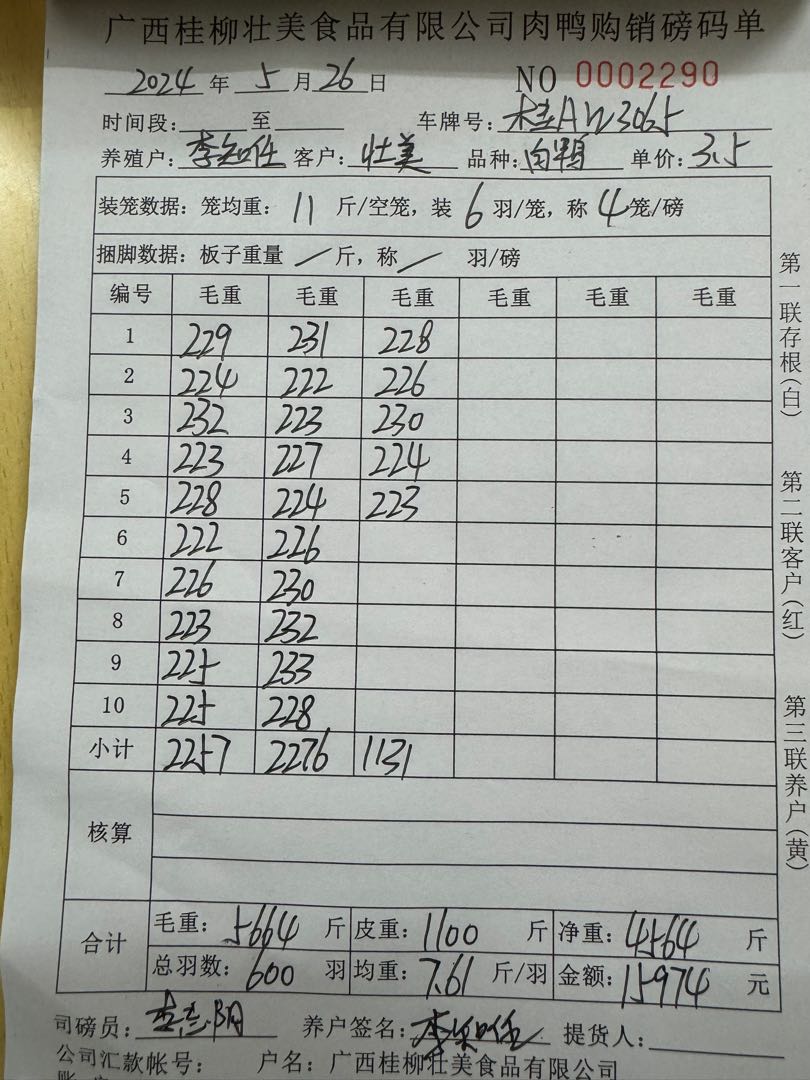 广西桂柳壮美食品有限公司肉鸭购销磅码单
2024 年 5 月 26 日 NO 0002290
时间段: 至 车牌号: 桂AW3065
养殖户: 李知任 客户: 壮美 品种: 白鸭 单价: 3.5
装笼数据: 笼均重: 11 斤/空笼, 装 6 羽/笼, 称 4 笼/磅
捆脚数据: 板子重量 / 斤, 称 / 羽/磅
编号 毛重 毛重 毛重 毛重 毛重 毛重
1 229 231 228
2 224 222 226
3 232 223 230
4 223 227 224
5 228 224 223
6 222 226
7 226 230
8 223 232
9 225 233
10 225 228
小计 2257 2276 1131
核算
合计
毛重: 5664 斤 皮重: 1100 斤 净重: 4564 斤
总羽数: 600 羽 均重: 7.61 斤/羽 金额: 15974 元
司磅员: 养户签名: 李知任 提货人:
公司汇款帐号: 户名: 广西桂柳壮美食品有限公司
第一联存根(白)
第二联客户(红)
第三联养户(黄)